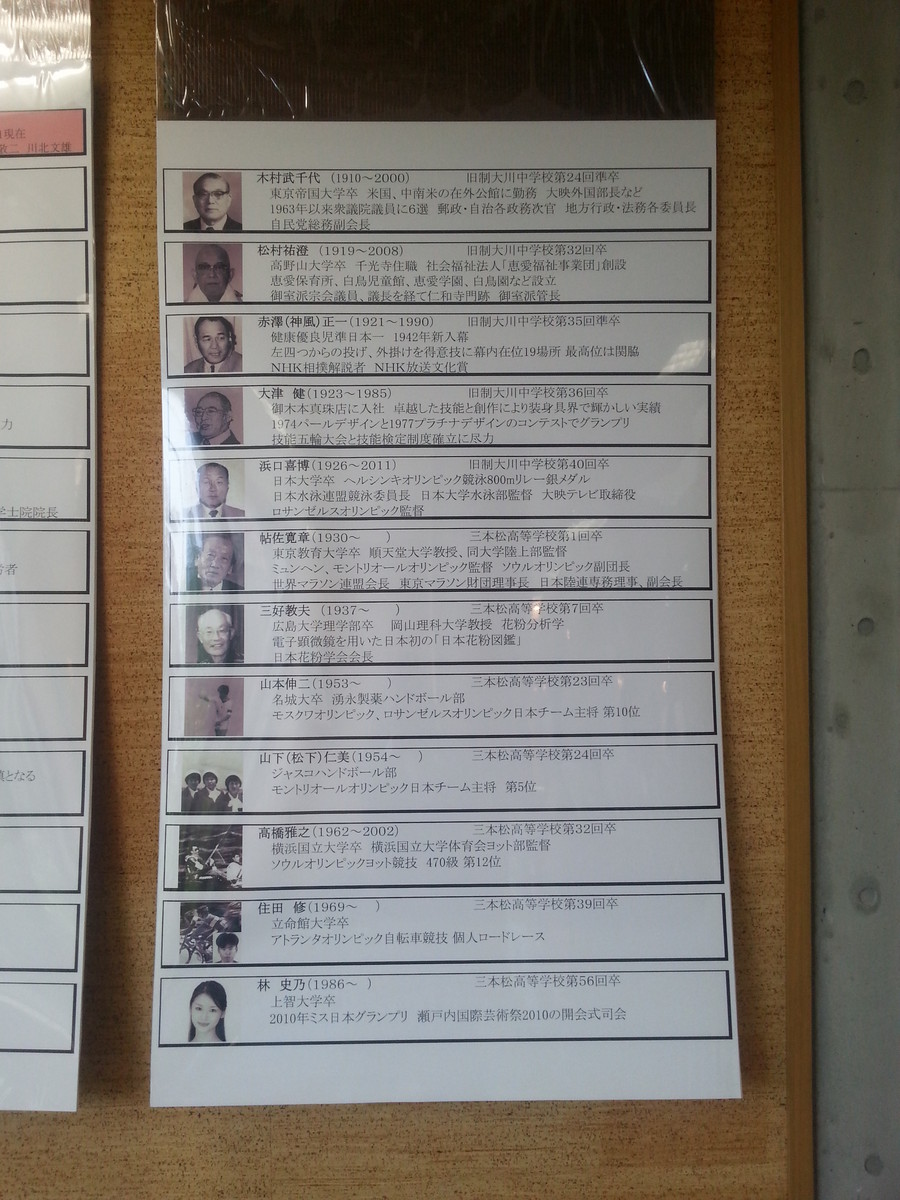 現在
敬二 川北文雄
力
学士院院長
労者
となる
木村武千代 (1910～2000) 旧制大川中学校第24回準卒
東京帝国大学卒 米国、中南米の在外公館に勤務 大映外国部長など
1963年以来衆議院議員に6選 郵政・自治各政務次官 地方行政・法務各委員長
自民党総務副会長
松村祐澄 (1919～2008) 旧制大川中学校第32回卒
高野山大学卒 千光寺住職 社会福祉法人「恵愛福祉事業団」創設
恵愛保育所、白鳥児童館、恵愛学園、白鳥園など設立
御室派宗会議員、議長を経て仁和寺門跡 御室派管長
赤澤(神風)正一(1921～1990) 旧制大川中学校第35回準卒
健康優良児準日本一 1942年新入幕
左四つからの投げ、外掛けを得意技に幕内在位19場所 最高位は関脇
NHK相撲解説者 NHK放送文化賞
大津 健(1923～1985) 旧制大川中学校第36回卒
御木本真珠店に入社 卓越した技能と創作により装身具界で輝かしい実績
1974パールデザインと1977プラチナデザインのコンテストでグランプリ
技能五輪大会と技能検定制度確立に尽力
浜口喜博(1926～2011) 旧制大川中学校第40回卒
日本大学卒 ヘルシンキオリンピック競泳800mリレー銀メダル
日本水泳連盟競泳委員長 日本大学水泳部監督 大映テレビ取締役
ロサンゼルスオリンピック監督
帖佐寛章(1930～ ) 三本松高等学校第1回卒
東京教育大学卒 順天堂大学教授、同大学陸上部監督
ミュンヘン、モントリオールオリンピック監督 ソウルオリンピック副団長
世界マラソン連盟会長 東京マラソン財団理事長 日本陸連専務理事、副会長
三好教夫 (1937～ ) 三本松高等学校第7回卒
広島大学理学部卒 岡山理科大学教授 花粉分析学
電子顕微鏡を用いた日本初の「日本花粉図鑑」
日本花粉学会会長
山本伸二(1953～ ) 三本松高等学校第23回卒
名城大卒 湧永製薬ハンドボール部
モスクワオリンピック、ロサンゼルスオリンピック日本チーム主将 第10位
山下(松下)仁美(1954～ ) 三本松高等学校第24回卒
ジャスコハンドボール部
モントリオールオリンピック日本チーム主将 第5位
高橋雅之(1962～2002) 三本松高等学校第32回卒
横浜国立大学卒 横浜国立大学体育会ヨット部監督
ソウルオリンピックヨット競技 470級 第12位
住田 修(1969～ ) 三本松高等学校第39回卒
立命館大学卒
アトランタオリンピック自転車競技 個人ロードレース
林 史乃(1986～ ) 三本松高等学校第56回卒
上智大学卒
2010年ミス日本グランプリ 瀬戸内国際芸術祭2010の開会式司会